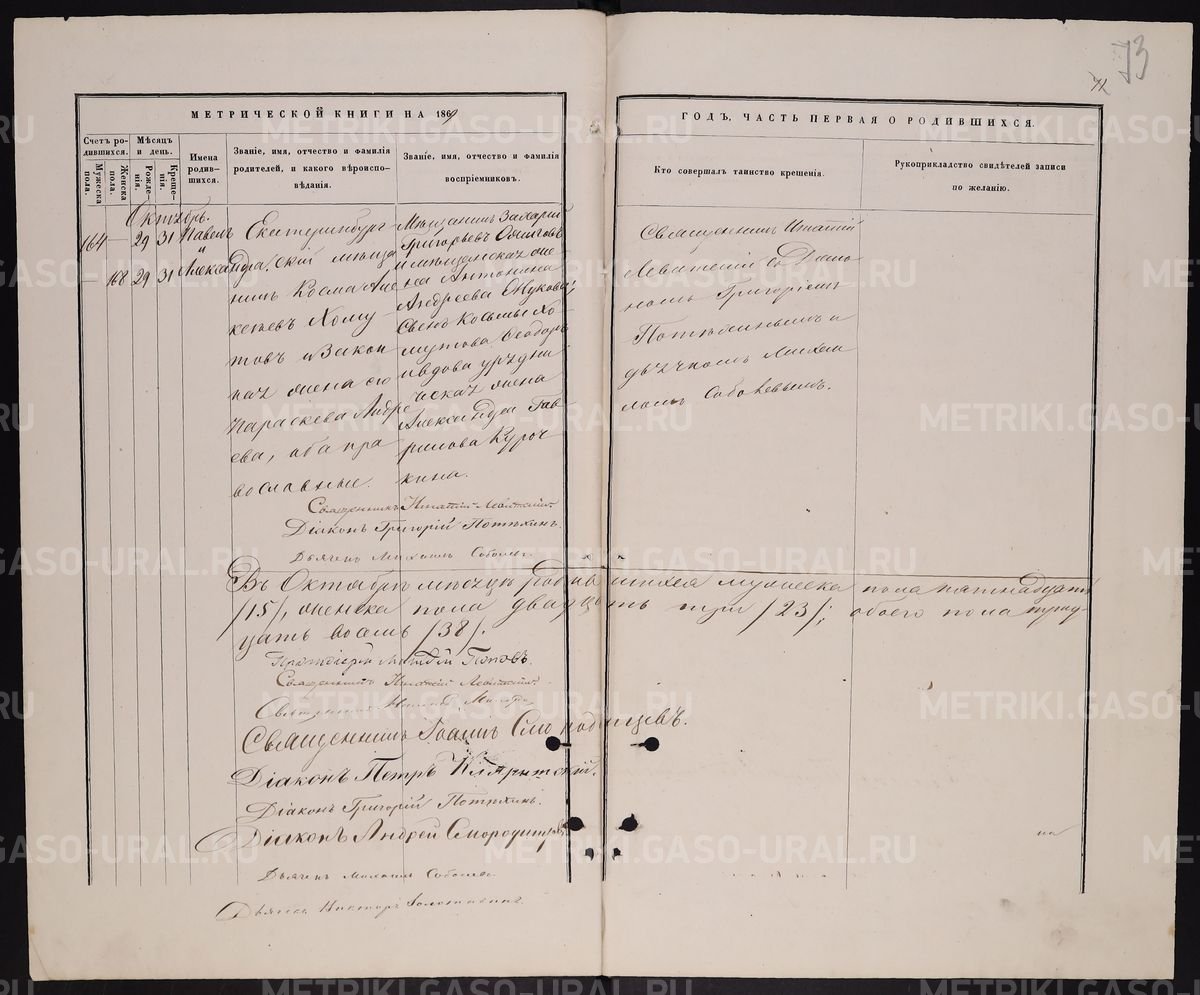 73
МЕТРИЧЕСКОЙ КНИГИ НА 1869
ГОДЪ, ЧАСТЬ ПЕРВАЯ О РОДИВШИХСЯ.
Счетъ родившихся.
Мужеска пола.
Женска пола.
Мѣсяцъ и день.
Рожденія.
Крещенія.
Имена родившихся.
Званіе, имя, отчество и фамилія родителей, и какого вѣроисповѣданія.
Званіе, имя, отчество и фамилія воспріемниковъ.
Кто совершалъ таинство крещенія.
Рукоприкладство свидѣтелей записи по желанію.
Октябрь.
164 — 29 31 Павелъ
и
— 168 29 31 Александра
Екатеринбург
скій мѣща
нинъ Косма
Хому
товъ и закон
ная жена его
Параскева Андре
ева, оба пра
вославные.
Мѣщанинъ Захарій
Григорьевъ
и мѣщанская же
на Антонина
Андреева
Козьмы Хо
мутова Ѳеодор
и вдова урядни
ческая жена
Александра Гав
рилова Куроч
кина.
Священникъ Игнатій
Левитскій съ Діако
номъ Григоріемъ
Потѣхинымъ и
дьячкомъ Михаи
ломъ Соболевымъ.
Священникъ Игнатій Левитскій.
Діаконъ Григорій Потѣхинъ.
Дьячекъ Михаилъ Соболевъ.
Въ Октябрѣ мѣсяцѣ родившихся мужеска пола пятнадцать
/15/, женска пола двадцать три /23/; обоего пола трид-
цать восемь /38/.
Протоіерей Матѳей Поповъ.
Священникъ Игнатій Левитскій.
Священникъ
Священникъ Іоаннъ Смородинцевъ.
Діаконъ Петръ
Діаконъ Григорій Потѣхинъ.
Діаконъ Андрей Смородинцевъ
Дьячекъ Михаилъ Соболевъ.
Дьячекъ Викторъ
METRIKI.GASO-URAL.RU